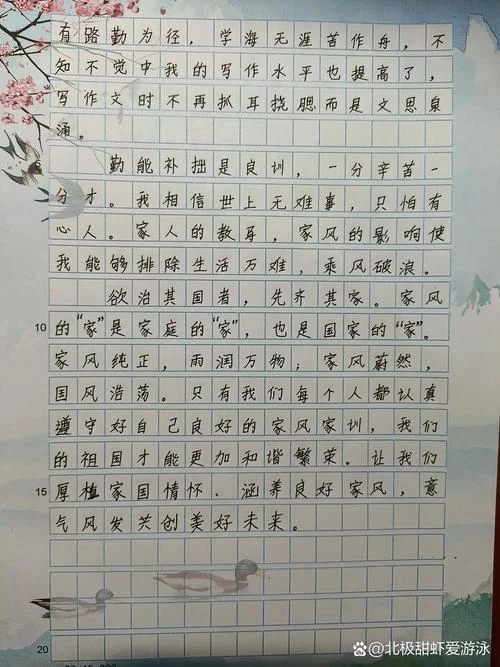 有路勤为径，学海无涯苦作舟，不
知不觉中我的写作水平也提高了，
写作文时不再抓耳挠腮而是文思泉
涌。
勤能补拙是良训，一分辛苦一
分才。我相信世上无难事，只怕有
心人。家人的教导，家风的影响使
我能够排除生活万难，乘风破浪。
欲治其国者，先齐其家。家风
10 的“家”是家庭的“家”，也是国家的“家”。
家风纯正，雨润万物；家风蔚然，
国风浩荡。只有我们每个人都认真
遵守好自己良好的家风家训，我们
的祖国才能更加和谐繁荣。让我们
15 厚植家国情怀、涵养良好家风，意
气风发共创美好未来。
20
@北极甜虾爱游泳